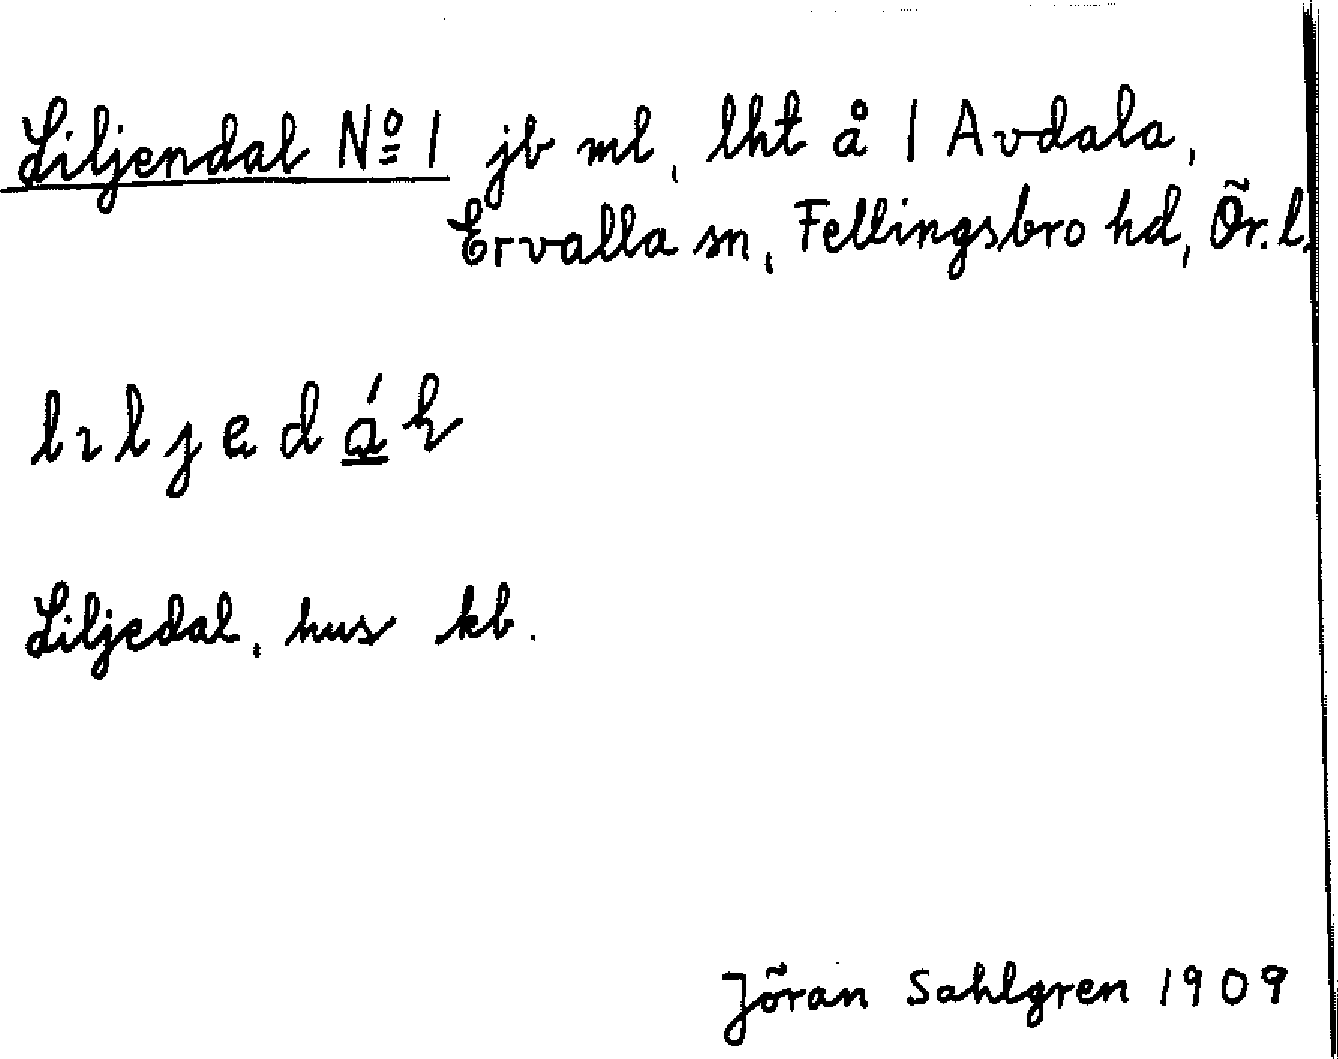 Liljendal Nº 1 jb ml, lht å 1 Avdala,
Ervalla sn, Fellingsbro hd, Ör. l.
lıljedál
Liljedal, hus kb.
Jöran Sahlgren 1909